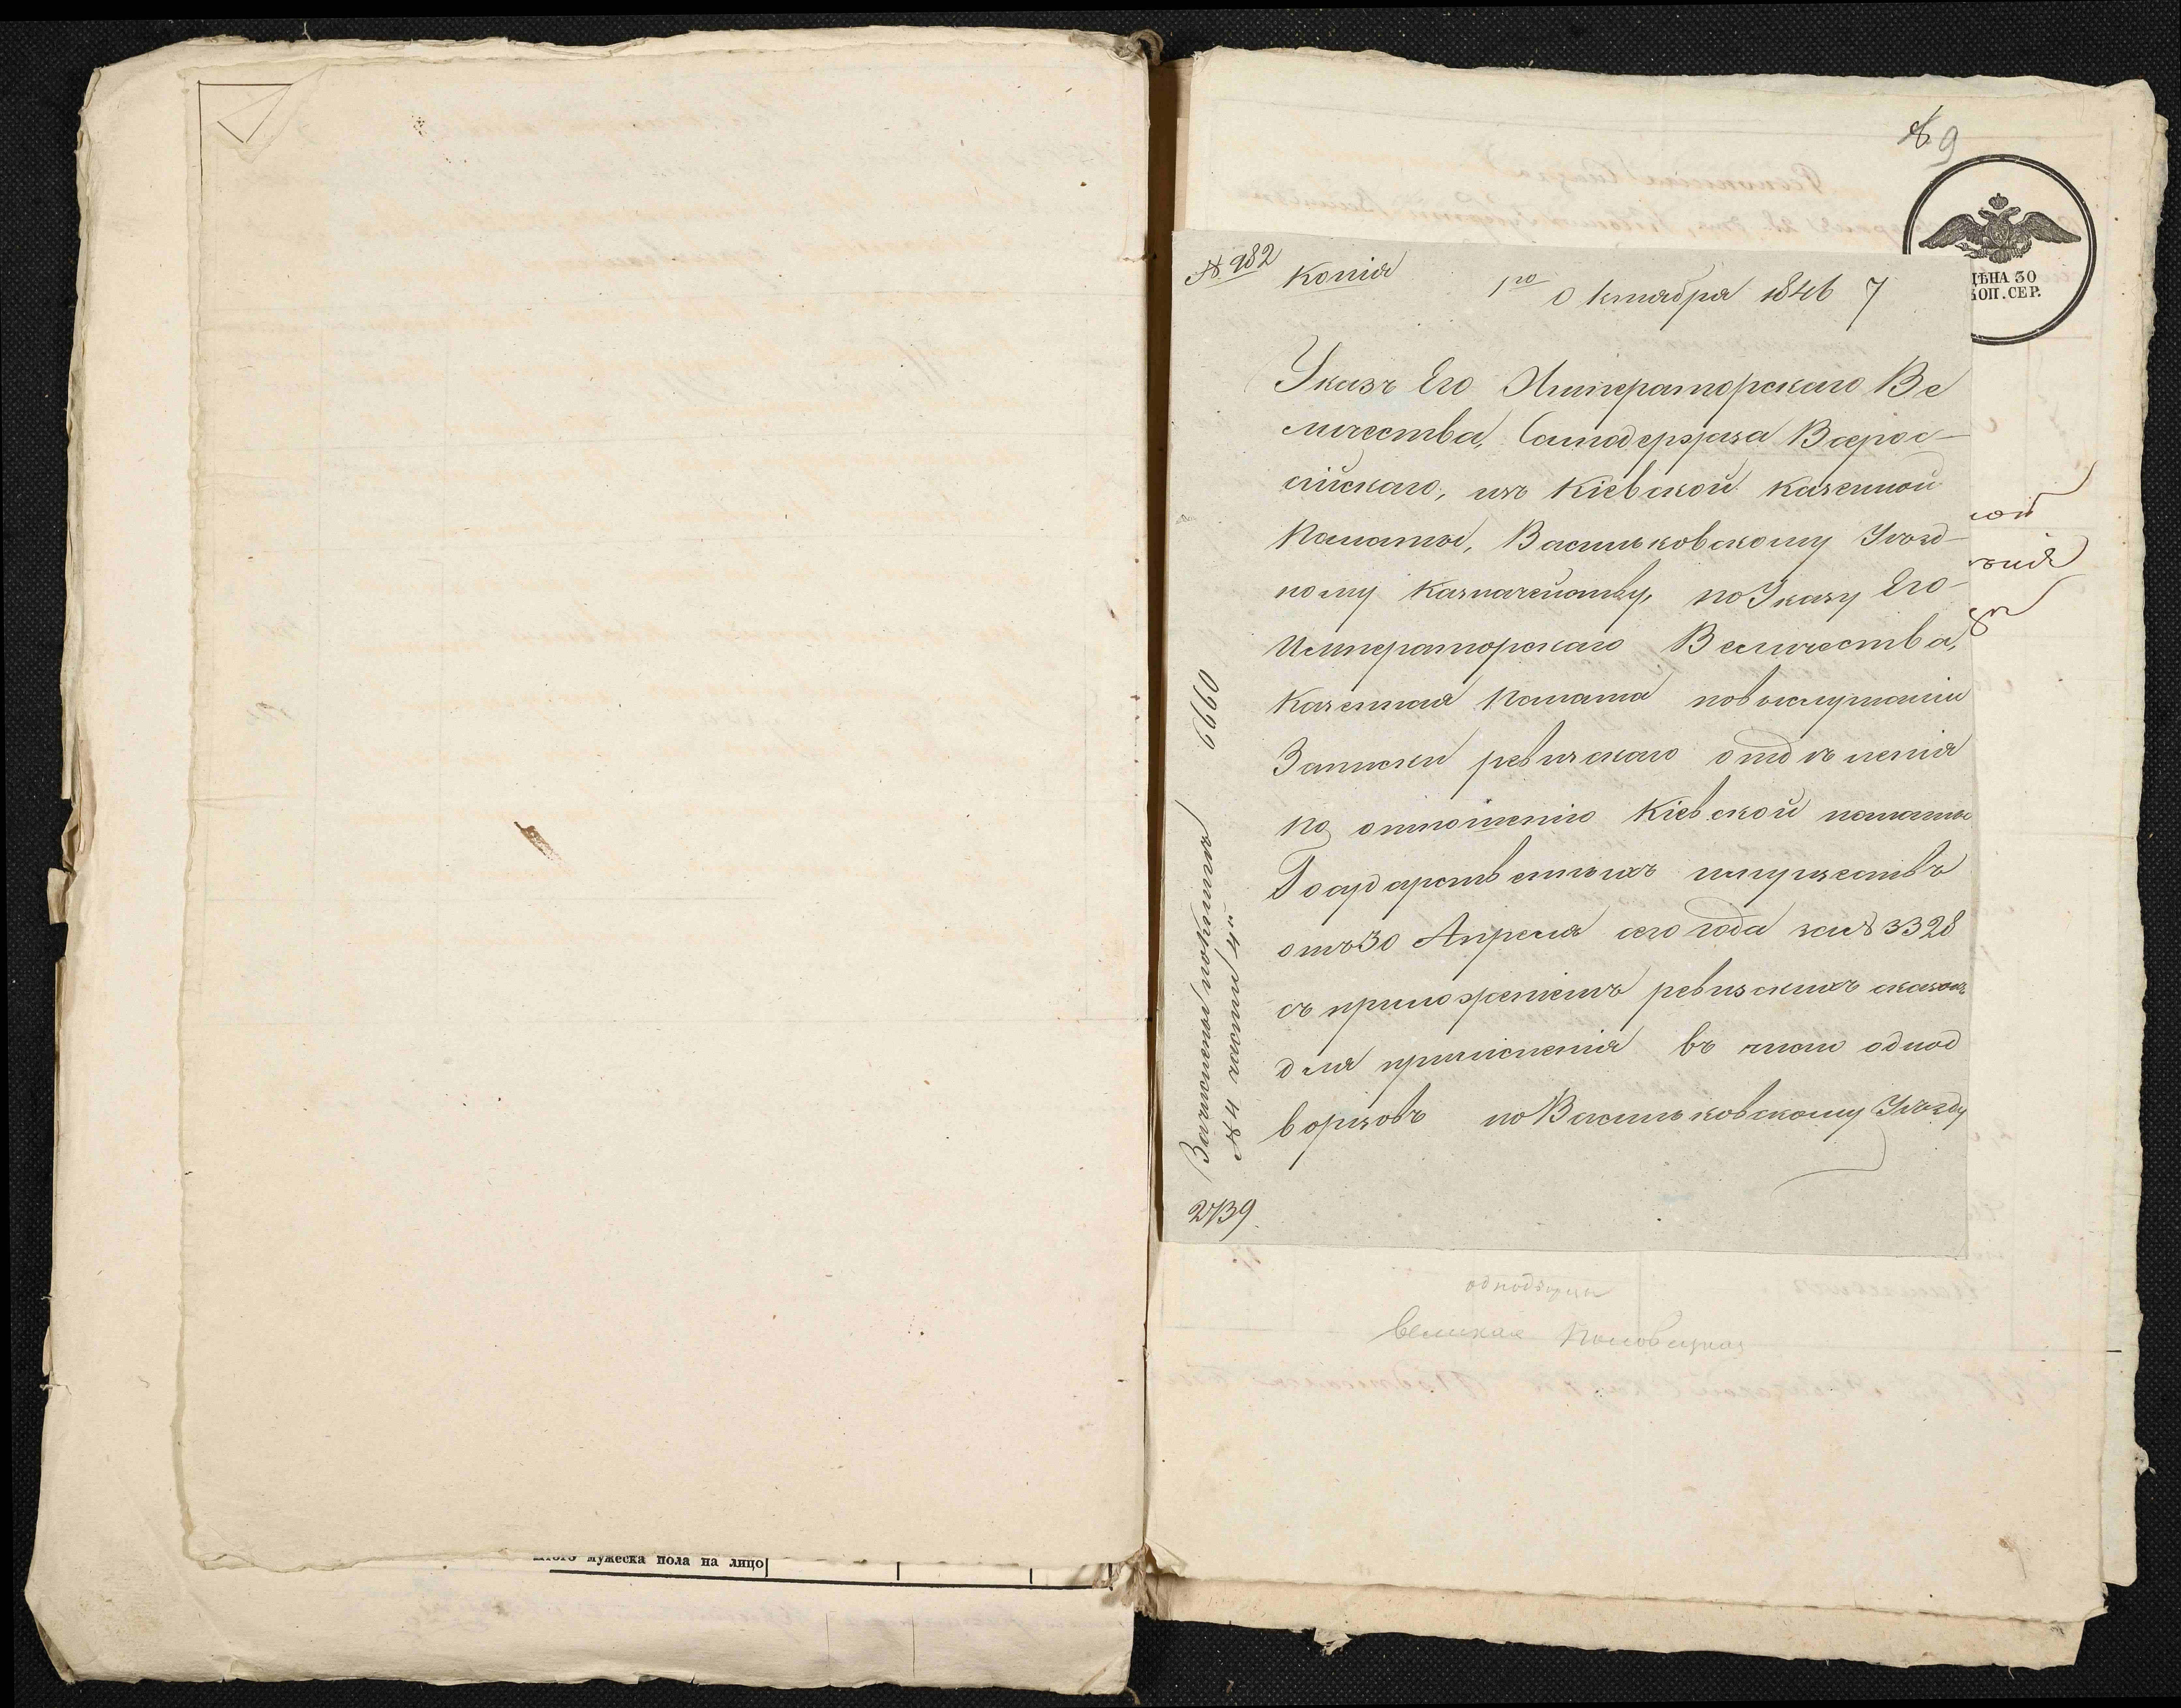 № 9
ЦѢНА 30
КОП. СЕР.
№ 982 Копія 1го Октября 1846 7
Указъ Его Императорскаго Ве
личества, Самодержца Всерос-
сійскаго, изъ Кіевской казенной
Палаты, Васильковскому Уѣзд-
ному Казначейству, по Указу Его
Императорскаго Величества,
Казенная Палата по выслушаніи
Записки ревизскаго отдѣленія
по отношенію Кіевской палаты
Государственныхъ имуществъ
отъ 30 Апреля сего года за № 3328
съ приложеніемъ ревизскихъ сказокъ
для причисленія въ число однод
ворцовъ по Васильковскому Уѣзду
6660
№ 4 части 4й
2739.
ной
однодворцы
Великая Половецкая
Итого мужеска пола на лицо